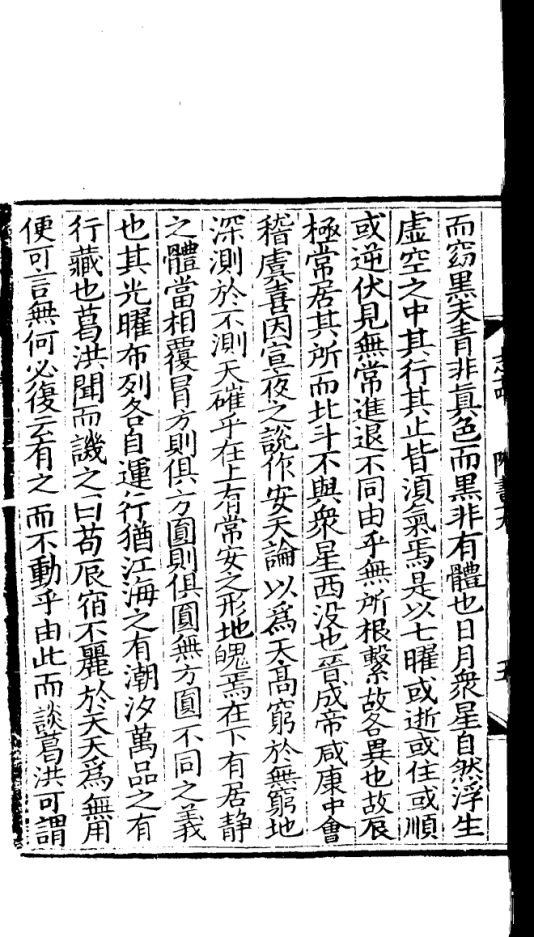 而窈黑夫青非真色而黑非有體也日月衆星自然浮生
虛空之中其行其止皆湏氣焉是以七曜或逝或住或順
或逆伏見無常進退不同由乎無所根繫故各異也故辰
極常居其所而北斗不與衆星西没也晉成帝咸康中會
稽虞喜因宣夜之說作安天論以爲天髙窮於無窮地
深測於不測天確乎在上有常安之形地魄焉在下有居静
之體當相覆冐方則俱方圓則俱圓無方圓不同之義
也其光曜布列各自運行猶江海之有潮汐萬品之有
行藏也葛洪聞而譏之曰苟辰宿不麗於天天爲無用
便可言無何必復云有之而不動乎由此而談葛洪可謂